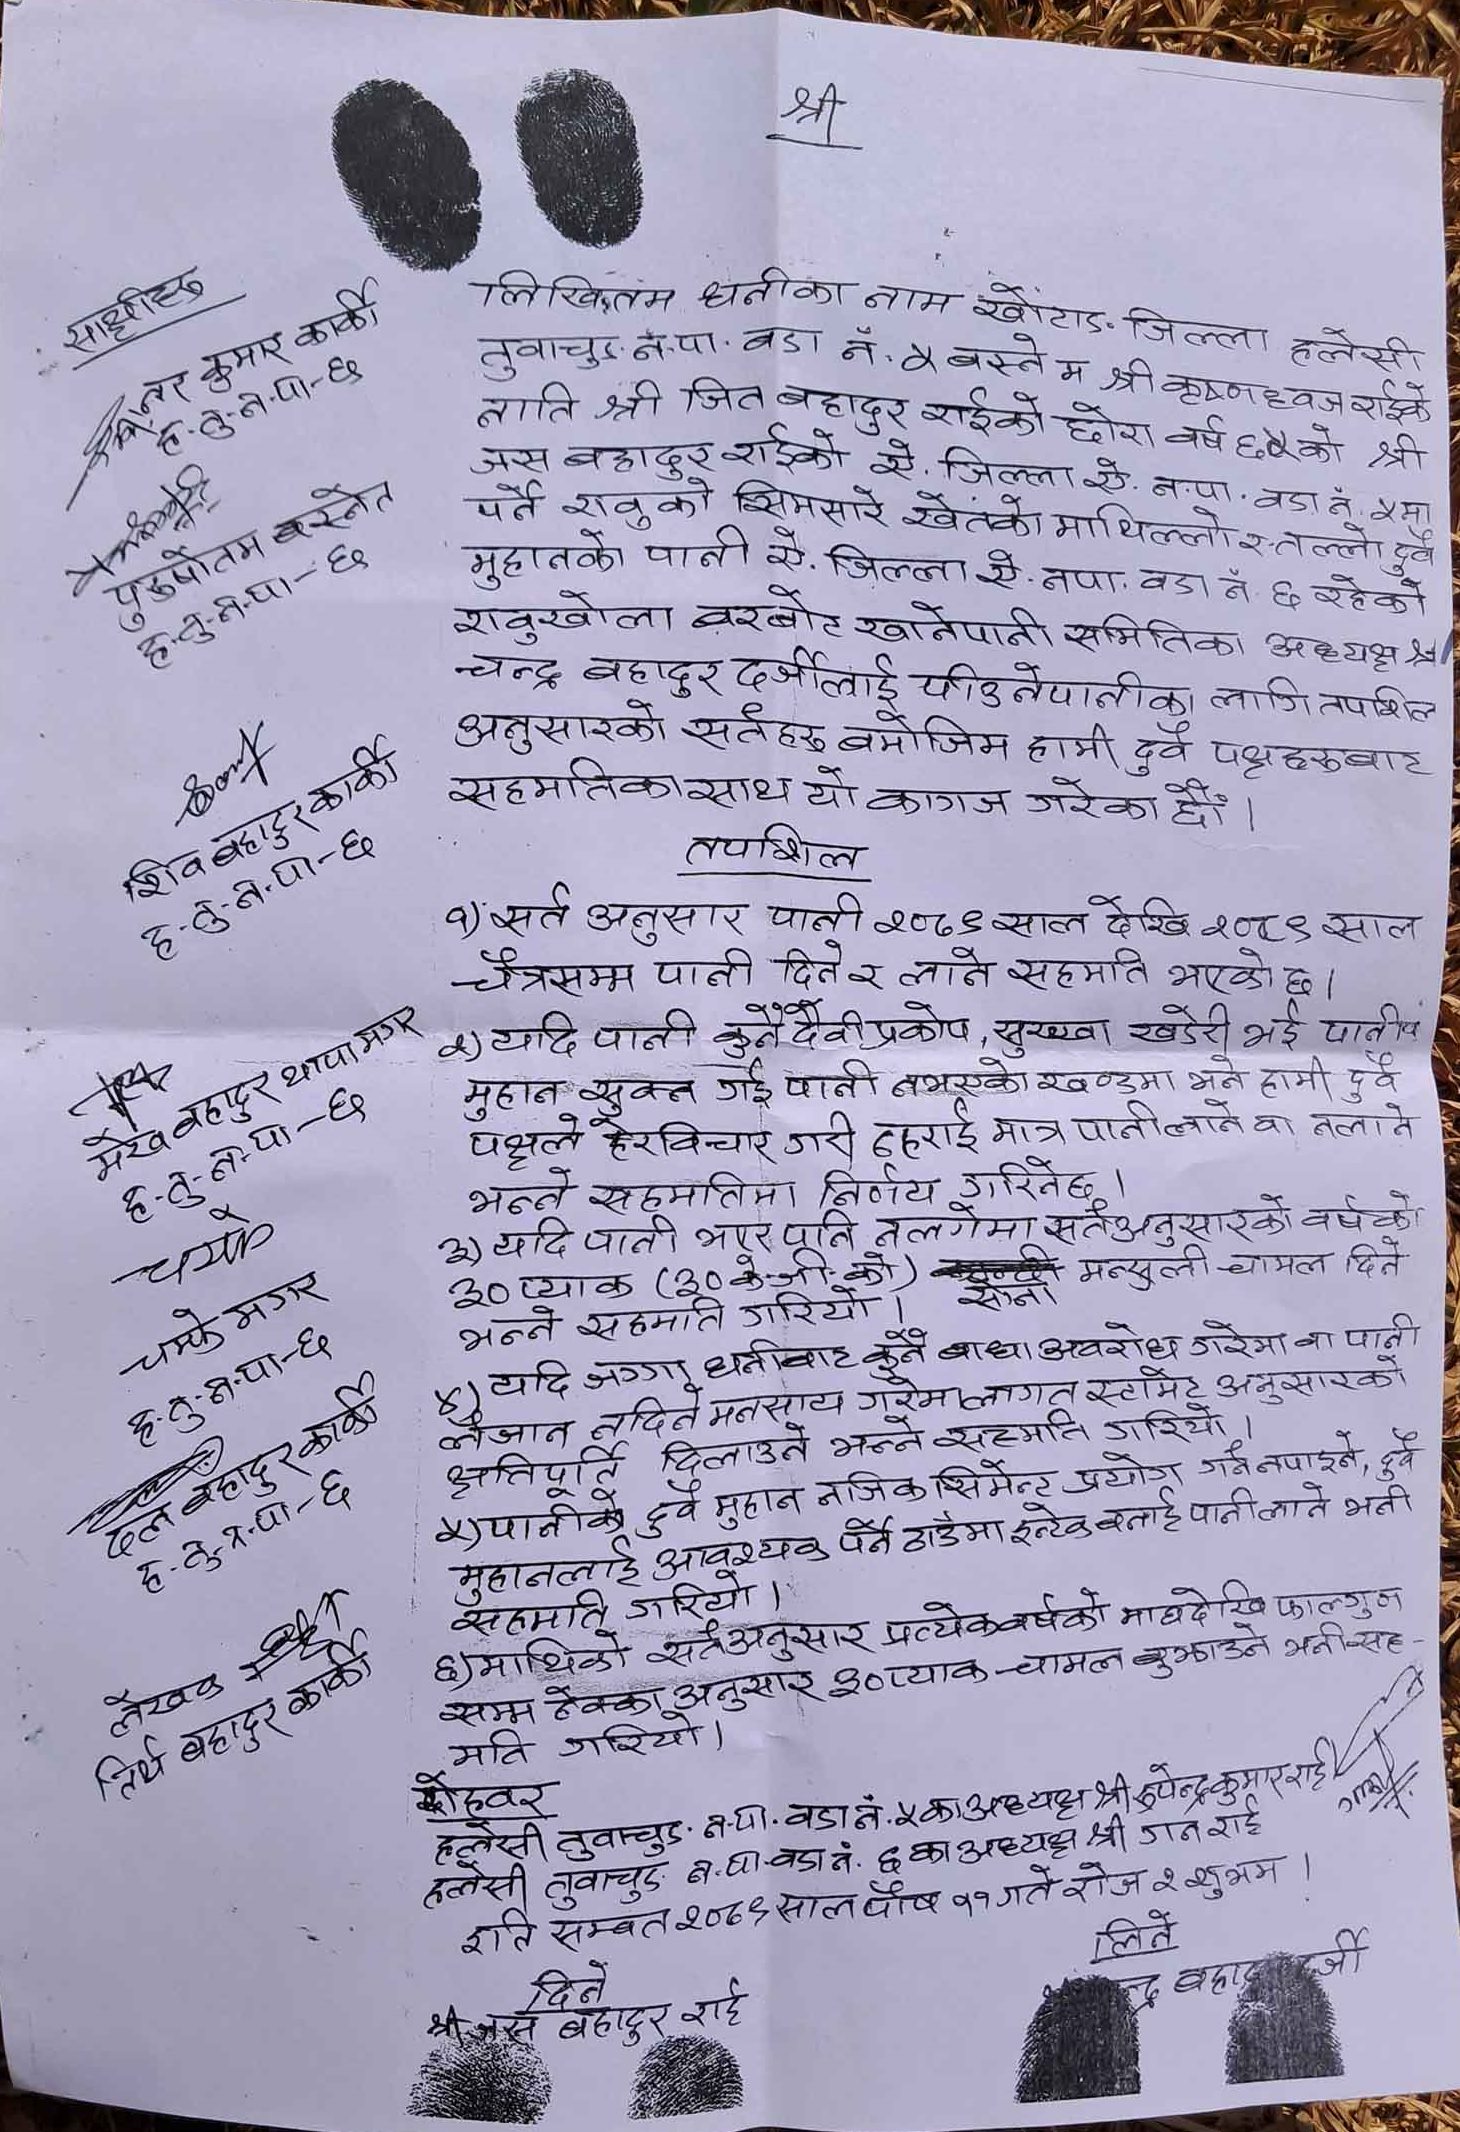 श्री
लिखितम धनीका नाम खोटाङ जिल्ला हलेसी
तुवाचुङ न.पा. वडा नं. ५ बस्ने म श्री कृष्णध्वज राईको
नाति श्री जित बहादुर राईको छोरा वर्ष ६५को श्री
जस बहादुर राईको ऐ. जिल्ला ऐ. न.पा. वडा नं. ५मा
पर्ने रावुको सिमसारे खेतको माथिल्लो र तल्लो दुवै
मुहानको पानी ऐ. जिल्ला ऐ. नपा. वडा नं ६ रहेको
रावुखोला वरबोट खानेपानी समितिका अध्यक्ष श्री
चन्द्र बहादुर दर्जीलाई पीउनेपानीका लागि तपशिल
अनुसारको सर्तहरु बमोजिम हामी दुवै पक्षहरुबाट
सहमतिका साथ यो कागज गरेका छौं ।
तपशिल
१) सर्त अनुसार पानी २०७९ साल देखि २०८९ साल
चैत्रसम्म पानी दिने र लाने सहमति भएको छ ।
२) यदि पानी कुनै दैवी प्रकोप, सुख्खा खडेरी भई पानीको
मुहान सुक्न गई पानी नभएको खण्डमा भने हामी दुवै
पक्षले हेरविचार गरी ठहराई मात्र पानी लाने वा नलाने
भन्ने सहमतिमा निर्णय गरिनेछ ।
३) यदि पानी भएर पनि नलगेमा सर्तअनुसारको वर्षको
३० प्याक (३० के.जी.को) सोना मन्सुली चामल दिने
भन्ने सहमति गरियो ।
४) यदि जग्गा धनीबाट कुनै बाधा अवरोध गरेमा वा पानी
लैजान नदिने मनसाय गरेमा लागत स्टमेट अनुसारको
क्षतिपूर्ति दिलाउने भन्ने सहमति गरियो ।
५) पानीको दुवै मुहान नजिक सिमेन्ट प्रयोग गर्न नपाइने, दुवै
मुहानलाई आवश्यक पर्ने ठाउँमा इन्टेक बनाई पानी लाने भनी
सहमति गरियो ।
६) माथिको सर्तअनुसार प्रत्येक वर्षको माघदेखि फाल्गुन
सम्म ठेक्का अनुसार ३० प्याक चामल बुझाउने भनी सह-
मति गरियो ।
रोहवर
हलेसी तुवाचुङ न.पा. वडा नं. ५ का अध्यक्ष श्री रुपेन्द्रकुमार राई
हलेसी तुवाचुङ न.पा. वडा नं. ६ का अध्यक्ष श्री गन राई
इति सम्वत २०७९ साल पौष ११ गते रोज २ शुभम ।
दिने
श्री जस बहादुर राई
लिने
चन्द्र बहादुर दर्जी
साक्षीहरु
नर कुमार कार्की
ह.तु.न.पा-६
पुरुषोतम बस्नेत
ह.तु.न.पा-६
शिव बहादुर कार्की
ह.तु.न.पा-६
मेख बहादुर थापा मगर
ह.तु.न.पा-६
चम्फे
चम्फे मगर
ह.तु.न.पा-६
दल बहादुर कार्की
ह.तु.न.पा-६
लेखक
तिर्थ बहादुर कार्की